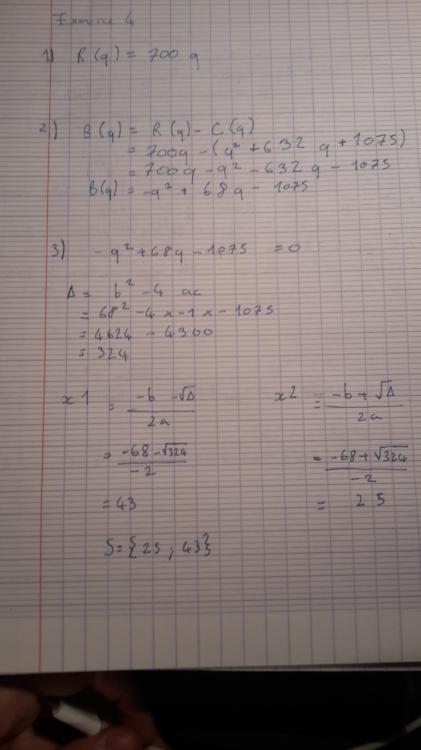 Exercice 4
1) R(q) = 700 q
2) B(q) = R(q) - C(q)
= 700q - (q² + 632 q + 1075)
= 700q - q² - 632 q - 1075
B(q) = -q² + 68q - 1075
3) - q² + 68q - 1075 = 0
Δ = b² - 4 ac
= 68² - 4 x -1 x - 1075
= 4624 - 4300
= 324
x1 = -b - √Δ / 2a
= -68 - √324 / -2
= 43
x2 = -b + √Δ / 2a
= -68 + √324 / -2
= 25
S = {25 ; 43}